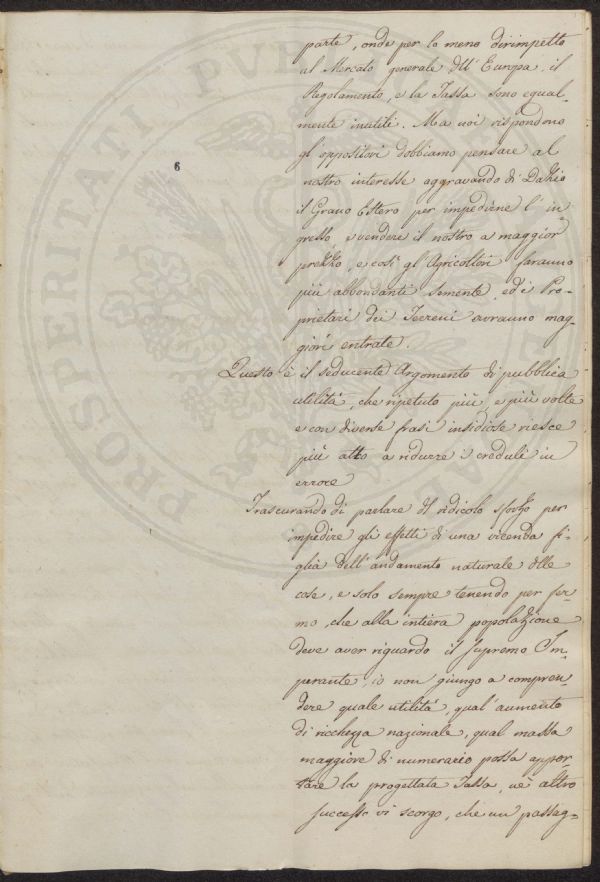 parte, onde per lo meno dirimpetto
al Mercato generale dell' Europa, il
Regolamento, e la Tassa sono egual-
mente inutili. Ma noi rispondono
gl'oppositori dobbiamo pensare al
nostro interesse aggravando di Dazio
il Grano Estero per impedirne l' in
gresso, e vendere il nostro a maggior
prezzo, e così gl'Agricoltori faranno
più abbondanti semente, ed i Pro-
prietari dei Terreni avranno mag-
giori entrate.
6
Questo è il seducente Argomento di pubblica
utilità, che ripetuto più, e più volte
e con diverse frasi insidiose riesce
più atto a ridurre i creduli in
errore
Trascurando di parlare del ridicolo sforzo per
impedire gli effetti di una vicenda fi-
glia dell'andamento naturale delle
cose, e solo sempre tenendo per fer-
mo, che alla intiera popolazione
deve aver riguardo il Supremo Im-
perante, io non giungo a compren-
dere quale utilità, qual'aumento
di ricchezza nazionale, qual massa
maggiore di numerario possa appor-
tare la progettata Tassa, nè altro
successo vi scorgo, che un passag-
PROSPERITATI PUBL